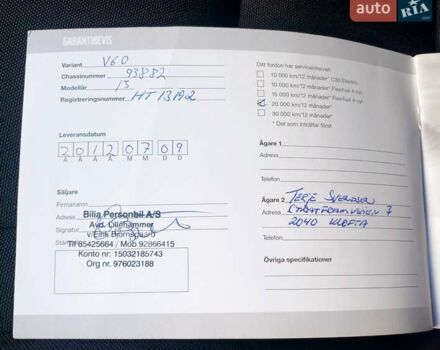 auto RIA.com
GARANTIBEVIS
Variant V60
Chassinummer 93882
Modellår 13
Registreringsnummer HT13192
Leveransdatum
2012 07 09
Å Å Å Å M M D D
Säljare
Firmanamn
Bilia Personbil A/S
Adress
Avd. Lillehammer
Signatur
v/Eirik Bjørnsgaard
Tlf 85425664 / Mob 92866415
Konto nr: 15032185743
Org nr. 976023188
Ditt fordon har serviceintervall:
10 000 km/12 månader* C30 Electric
10 000 km/12 månader* Flexifuel 4-cyl.
15 000 km/12 månader* Flexifuel 5-cyl.
20 000 km/12 månader*
30 000 km/12 månader*
* Det som inträffar först
Ägare 1
Adress
Telefon
Ägare 2 TERJE
Adress 7
2040 KLØFTA
Telefon
Övriga specifikationer